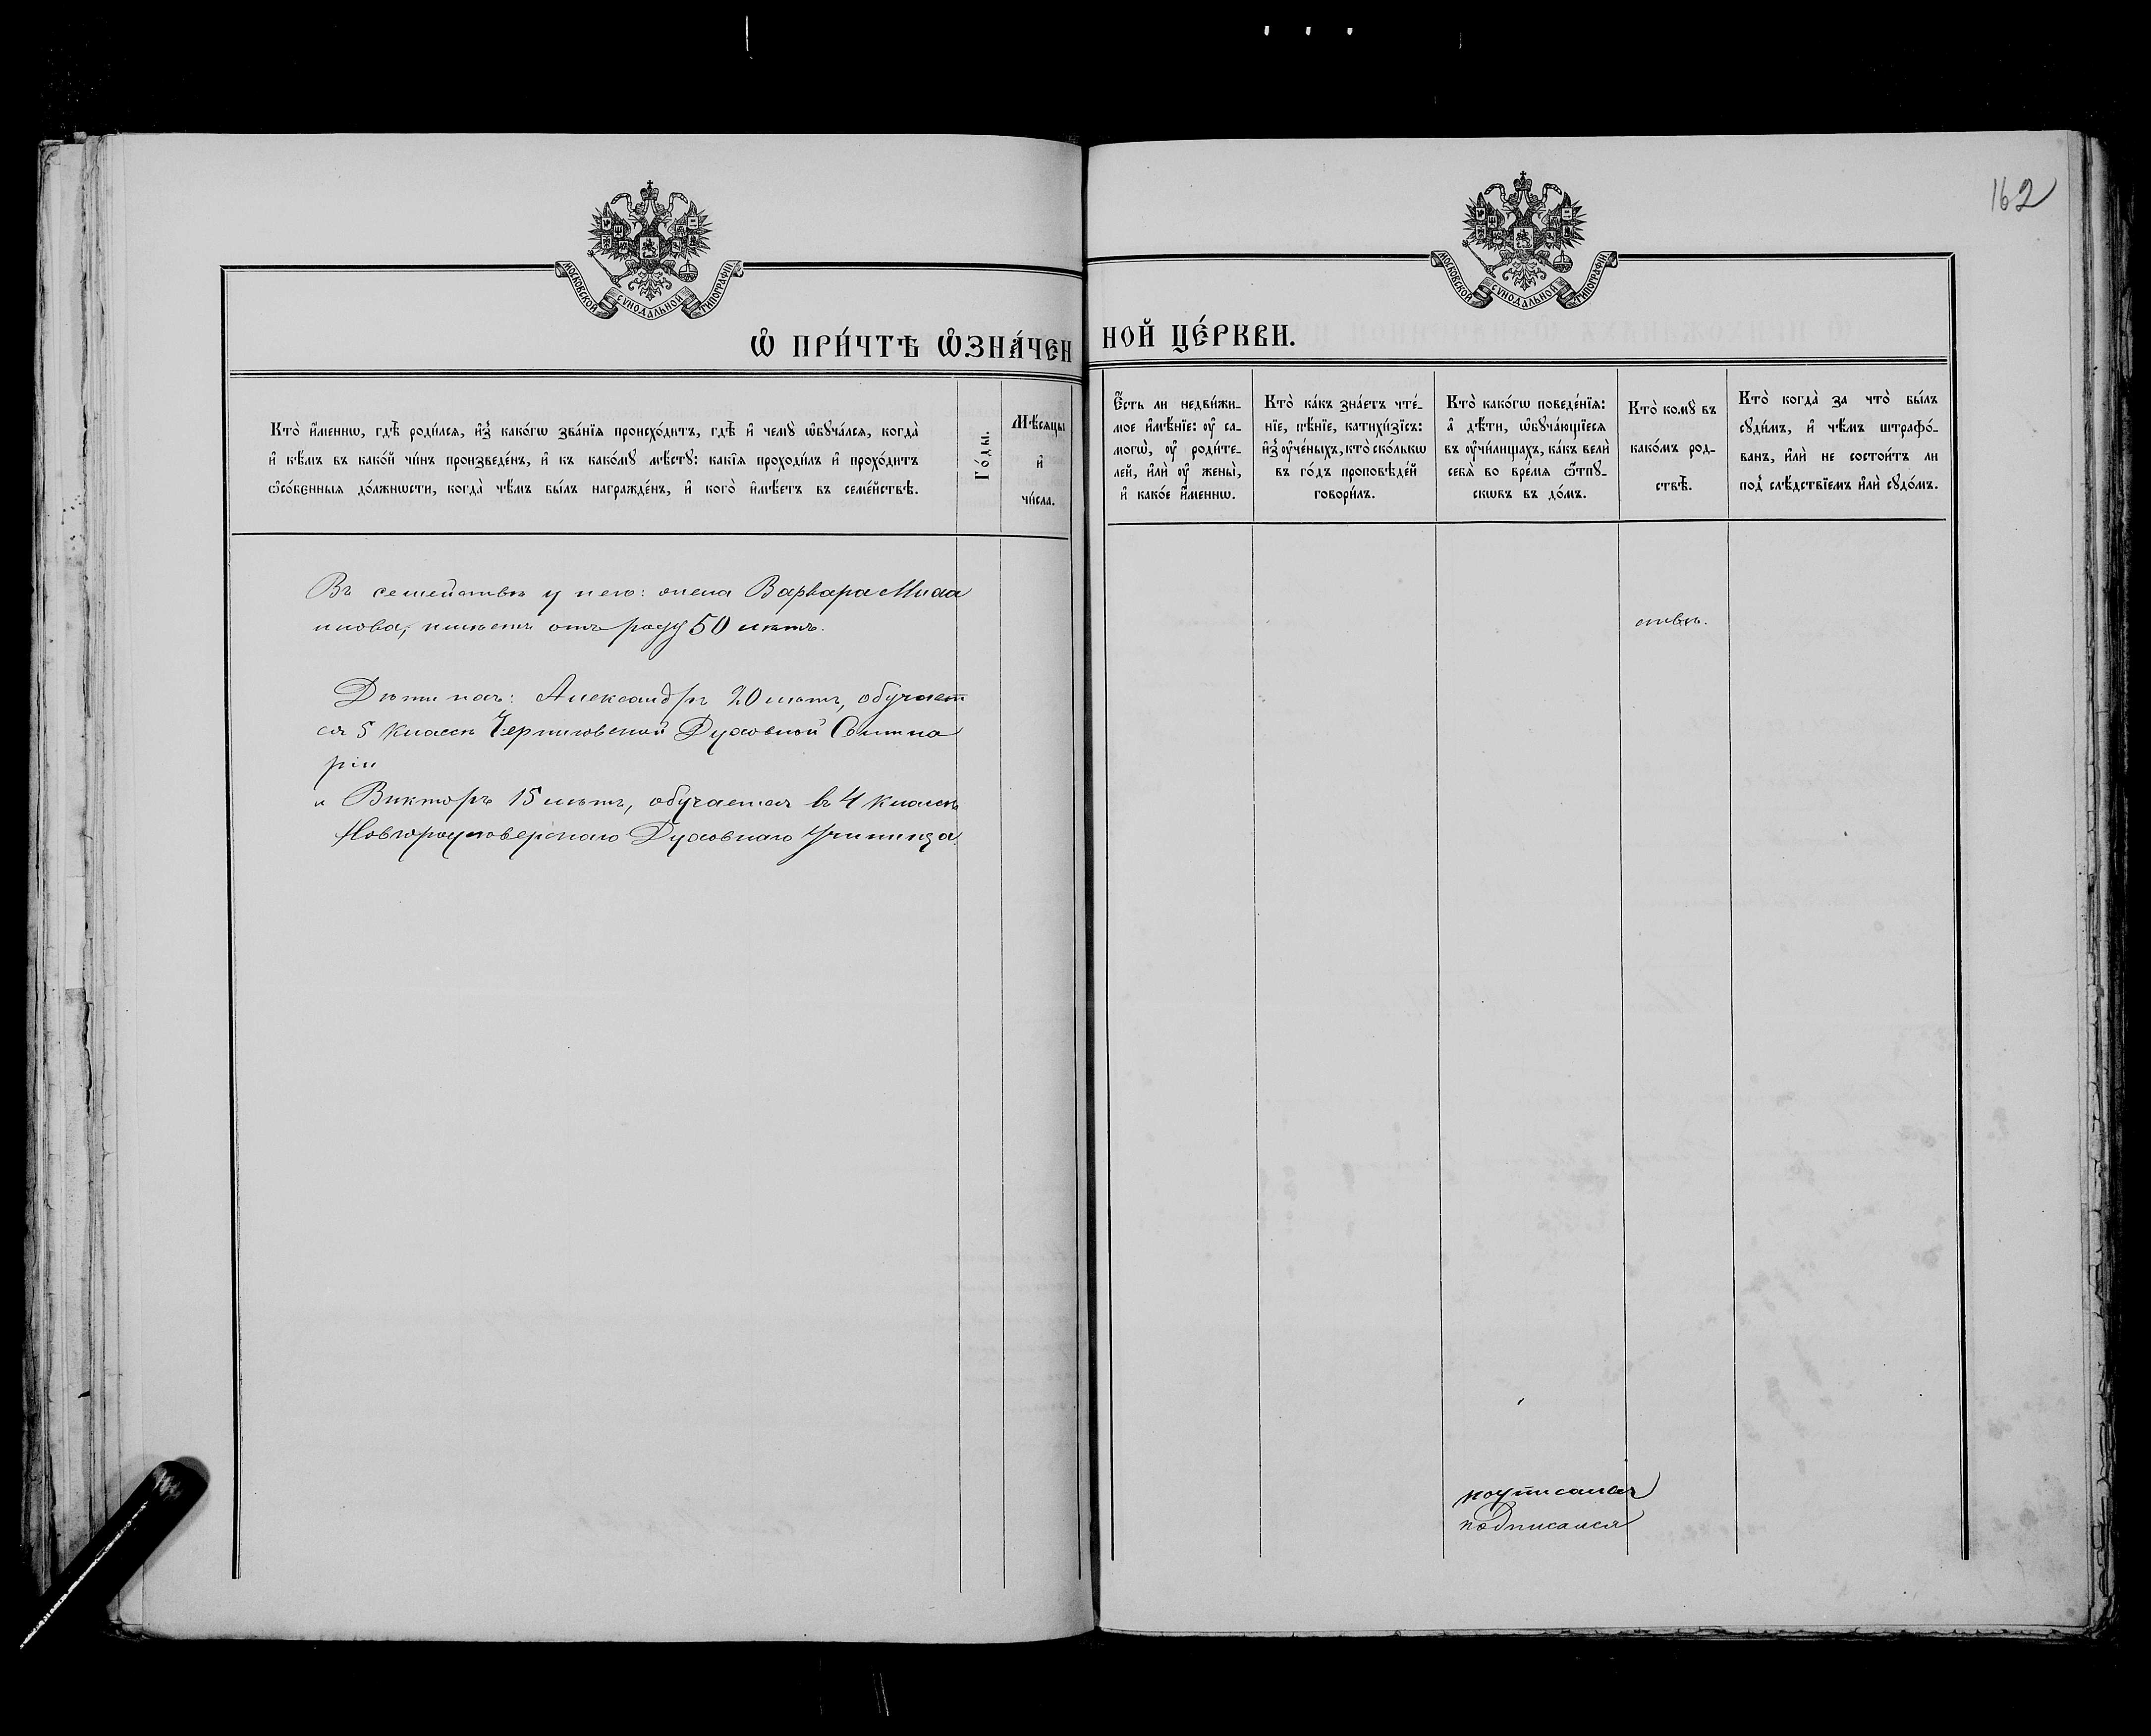 162
МОСКОВСКОЙ СѴНОДАЛЬНОЙ ТИПОГРАФІИ.
МОСКОВСКОЙ СѴНОДАЛЬНОЙ ТИПОГРАФІИ.
Ѽ ПРИ́ЧТѢ Ѡ҆ЗНА́ЧЕННОЙ ЦЕ́РКВИ.
Кто̀ и҆́менно, гдѣ̀ роди́лся, и҆з̾ како́гѡ зва́нїѧ происхо́дитъ, гдѣ̀ и҆ чемꙋ̀ ѡ҆бꙋча́лся, когда̀
и҆ кѣ́мъ въ како́й чи́нъ произведе́нъ, и҆ къ како́мꙋ мѣ́стꙋ: какі̑ѧ проходи́лъ и҆ прохо́дитъ
ѡ҆со́бенныѧ до́лжнѡсти, когда̀ чѣ́мъ бы́лъ награжде́нъ, и҆ кого̀ и҆мѣ́етъ въ семе́йствѣ.
Го́ды.
Мѣ́сяцы
и҆
чи́сла.
Е҆́сть ли недви́жи-
мое и҆мѣ́нїе: ᲂу҆ са-
могѡ̀, ᲂу҆ роди́те-
лей, и҆лѝ ᲂу҆ жены̀,
и҆ како́е и҆́меннѡ.
Кто̀ ка́къ зна́етъ чте́-
нїе, пѣ́нїе, катихи́зїсъ:
и҆з̾ ᲂу҆че́ныхъ, кто̀ ско́лькѡ
въ го́дъ проповѣ́дей
говори́лъ.
Кто̀ како́гѡ поведе́нїѧ:
а҆ дѣ́ти, ѡ҆бꙋча́ющїесѧ
въ ᲂу҆чи́лищахъ, ка́къ велѝ
себѧ̀ во вре́мѧ ѿпꙋ-
скѡвъ въ до́мъ.
Кто̀ комꙋ̀ въ
како́мъ род-
ствѣ̀.
Кто̀ когда̀ за что̀ бы́лъ
сꙋди́мъ, и҆ чѣ́мъ штрафо́-
ванъ, и҆лѝ не состои́тъ ли
под̾ слѣ́дствїемъ и҆лѝ сꙋдо́мъ.
Въ семействѣ у него: жена Варвара
имѣетъ отъ роду 50 лѣтъ.
ствѣ.
Дѣти ихъ: Александръ 20 лѣтъ, обучает
ся 5 классѣ Черниговской Духовной Семина
ріи
и Викторъ 15 лѣтъ, обучается въ 4 классѣ
Новгородсѣверскаго Духовнаго Училища.
подписался
подписался